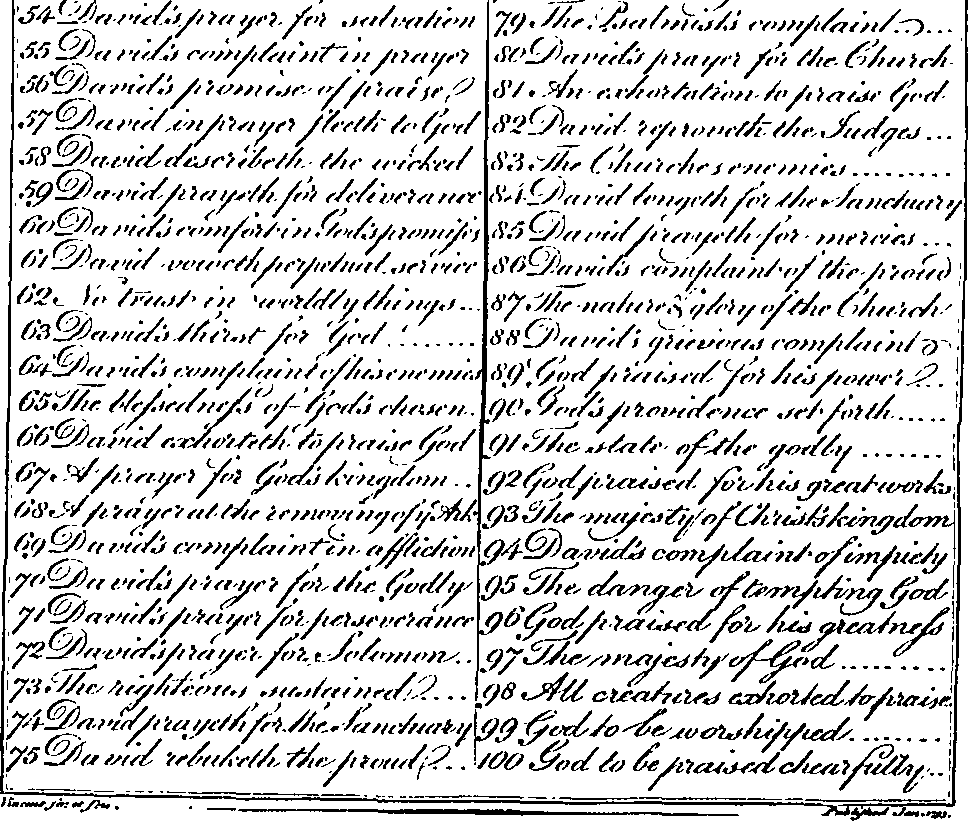 54 David's prayer for salvation
55 David's complaint in prayer
56 David's promise of praise
57 David in prayer fleeth to God
58 David describeth the wicked
59 David prayeth for deliverance
60 David's comfort in God's promises
61 David voweth perpetual service
62 No trust in worldly things...
63 David's thirst for God ........
64 David's complaint of his enemies
65 The blessedness of God's chosen.
66 David exhorteth to praise God
67 A prayer for God's kingdom..
68 A prayer at the removing of ye Ark
69 David's complaint in affliction
70 David's prayer for the Godly
71 David's prayer for perseverance
72 David's prayer for Solomon..
73 The righteous sustained....
74 David prayeth for the Sanctuary
75 David rebuketh the proud...
79 The Psalmist's complaint....
80 David's prayer for the Church
81 An exhortation to praise God
82 David reproveth the Judges...
83 The Churches enemies.........
84 David longeth for the Sanctuary
85 David prayeth for mercies...
86 David's complaint of the proud
87 The nature & glory of the Church
88 David's grievous complaint
89 God praised for his power...
90 God's providence set forth.....
91 The state of the godly .......
92 God praised for his great works
93 The majesty of Christ's kingdom
94 David's complaint of impiety
95 The danger of tempting God
96 God praised for his greatness
97 The majesty of God ..........
98 All creatures exhorted to praise
99 God to be worshipped........
100 God to be praised chearfully..
Published Jan.